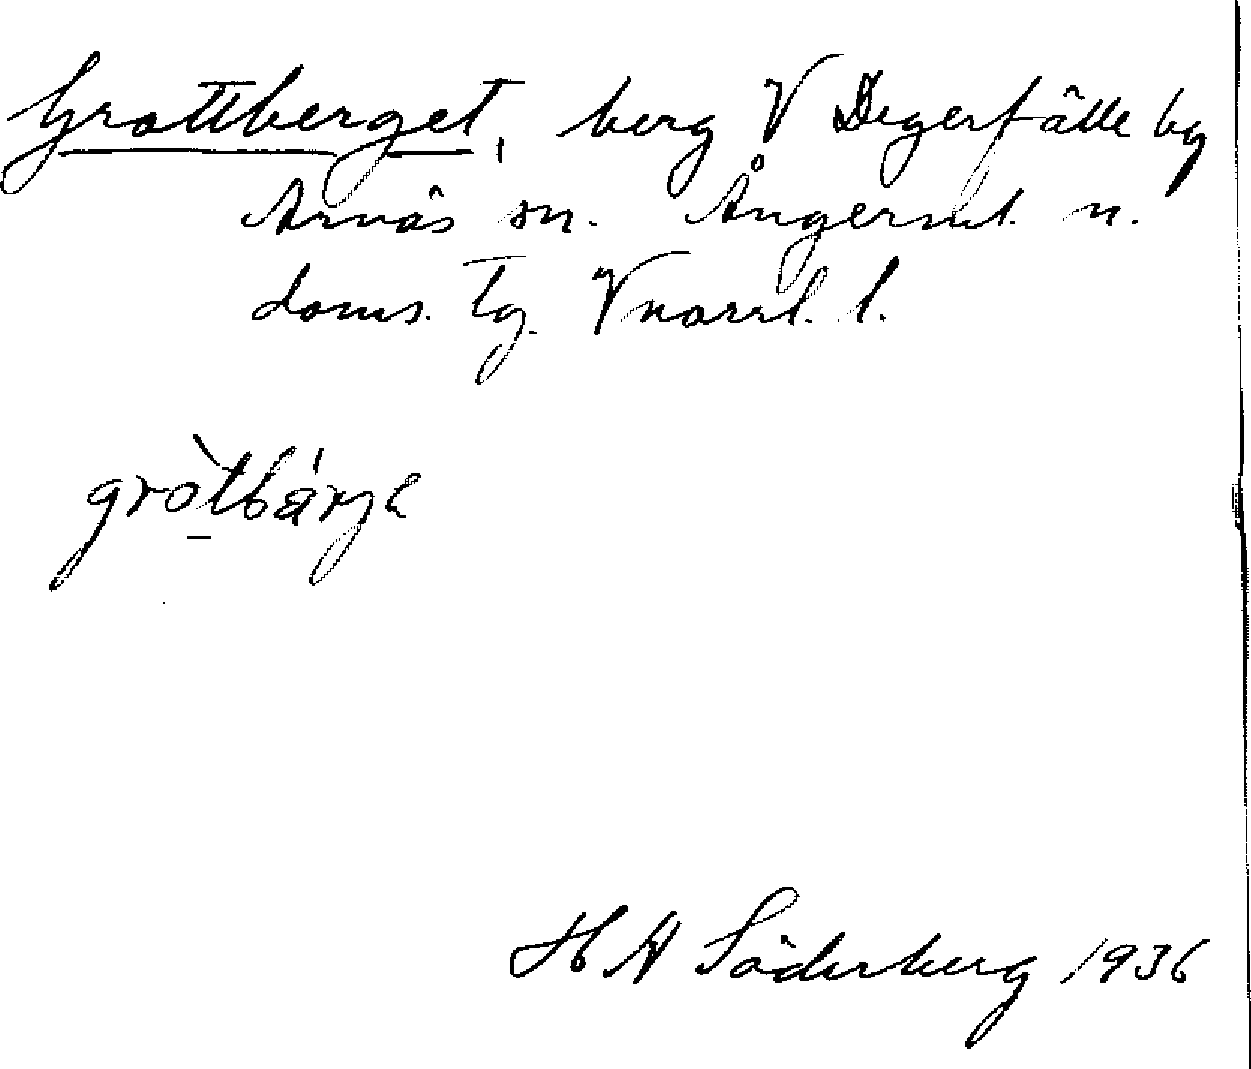 Grottberget, berg V Degerfälle by
Arnäs sn. Ångerml. n.
doms. tg. Vnorrl. l.
gròtbárjə
H A Söderberg 1936